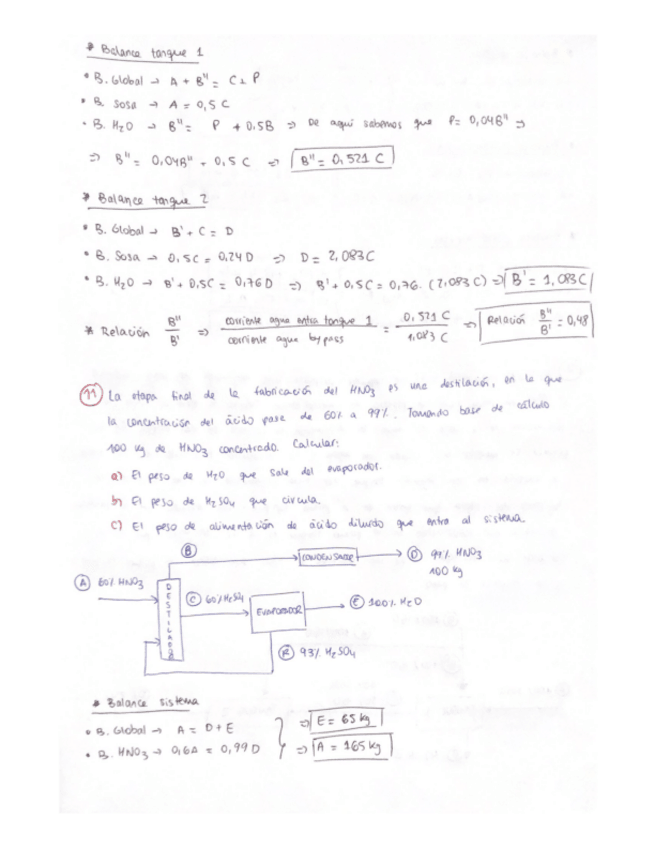 * Balance tanque 1
• B. Global → A + B'' = C + P
• B. Sosa → A = 0,5 C
• B. H2O → B'' = P + 0,5B ⇒ De aquí sabemos que P = 0,04B'' ⇒
⇒ B'' = 0,04B'' + 0,5 C ⇒ B'' = 0,521 C
* Balance tanque 2
• B. Global → B' + C = D
• B. Sosa → 0,5C = 0,24D ⇒ D = 2,083C
• B. H2O → B' + 0,5C = 0,76D ⇒ B' + 0,5C = 0,76. (2,083C) ⇒ B' = 1,083C
* Relación B''/B' ⇒ corriente agua entra tanque 1 / corriente agua bypass = 0,521 C / 1,083 C ⇒ Relación B''/B' = 0,48
11 La etapa final de la fabricación del HNO3 es una destilación, en la que
la concentración del ácido pasa de 60% a 99%. Tomando base de cálculo
100 kg de HNO3 concentrado. Calcular:
a) El peso de H2O que sale del evaporador.
b) El peso de H2SO4 que circula.
c) El peso de alimentación de ácido diluido que entra al sistema.
B
CONDENSADOR
D 99% HNO3
100 kg
A 60% HNO3
DESTILADOR
C 60% H2SO4
EVAPORADOR
E 100% H2O
R 93% H2SO4
* Balance sistema
• B. Global → A = D + E ⇒ E = 65 kg
• B. HNO3 → 0,6A = 0,99D ⇒ A = 165 kg